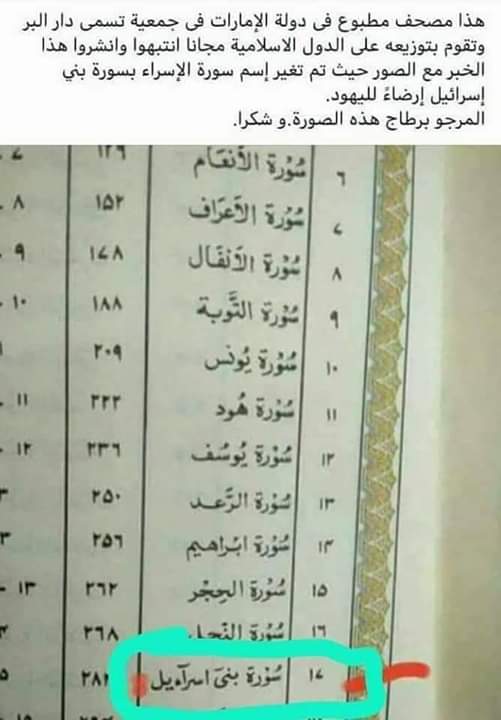 هذا مصحف مطبوع فى دولة الإمارات فى جمعية تسمى دار البر
وتقوم بتوزيعه على الدول الاسلامية مجانا انتبهوا وانشروا هذا
الخبر مع الصور حيث تم تغير إسم سورة الإسراء بسورة بني
إسرائيل إرضاءً لليهود.
المرجو برطاج هذه الصورة.و شكرا.
٦ سُوْرَة الأَنعَام ١٢٩
٧ سُوْرَة الأَعرَاف ١٥٢ ٨
٨ سُوْرَة الأَنفَال ١٧٨ ٩
٩ سُوْرَة التَّوبَة ١٨٨ ١٠
١٠ سُوْرَة يُونس ٢٠٩
١١ سُوْرَة هُود ٢٢٢ ١١
١٢ سُوْرَة يُوسُف ٢٣٦ ١٢
١٣ سُوْرَة الرَّعد ٢٥٠
١٤ سُوْرَة ابْرَاهِيم ٢٥٦
١٥ سُوْرَة الحِجْر ٢٦٢ ١٣
١٦ سُوْرَة النَّحل ٢٦٨
١٧ سُوْرَة بَنىٓ اسرآءيل